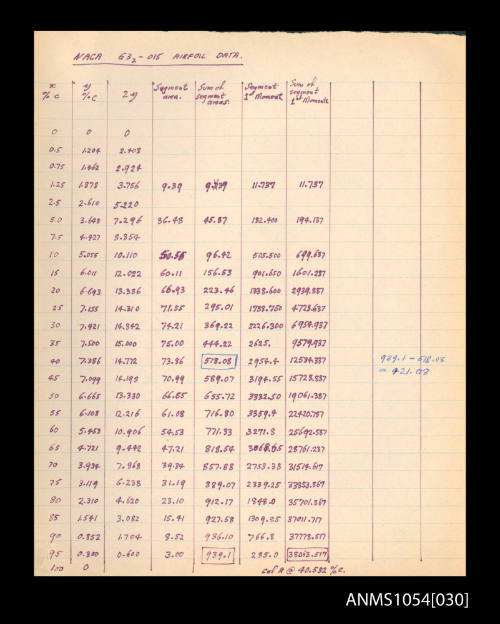 NACA 63₂-015 AIRFOIL DATA.
x % c y % c 2y Segment area. Sum of segment areas. Segment 1st Moment Sum of segment 1st Moments
0 0 0
0.5 1.204 2.408
0.75 1.462 2.924
1.25 1.878 3.756 9.39 9.39 11.737 11.737
2.5 2.610 5.220
5.0 3.648 7.296 36.48 45.87 182.400 194.137
7.5 4.427 8.854
10 5.055 10.110 50.55 96.42 505.500 699.637
15 6.011 12.022 60.11 156.53 901.650 1601.287
20 6.693 13.386 66.93 223.46 1338.600 2939.887
25 7.155 14.310 71.55 295.01 1788.750 4728.637
30 7.421 14.842 74.21 369.22 2226.300 6954.937
35 7.500 15.000 75.00 444.22 2625. 9579.937
40 7.386 14.772 73.86 518.08 2954.4 12534.337 939.1 - 518.08
45 7.099 14.198 70.99 589.07 3194.55 15728.887 = 421.08
50 6.665 13.330 66.65 655.72 3332.50 19061.387
55 6.108 12.216 61.08 716.80 3359.4 22420.787
60 5.453 10.906 54.53 771.33 3271.8 25692.587
65 4.721 9.442 47.21 818.54 3068.65 28761.237
70 3.934 7.868 39.34 857.88 2753.38 31514.617
75 3.119 6.238 31.19 889.07 2339.25 33853.867
80 2.310 4.620 23.10 912.17 1848.0 35701.867
85 1.541 3.082 15.41 927.58 1309.85 37011.717
90 0.852 1.704 8.52 936.10 766.8 37778.517
95 0.300 0.600 3.00 939.1 285.0 38063.517
100 0 cof A @ 40.532 % c.
ANMS1054[030]